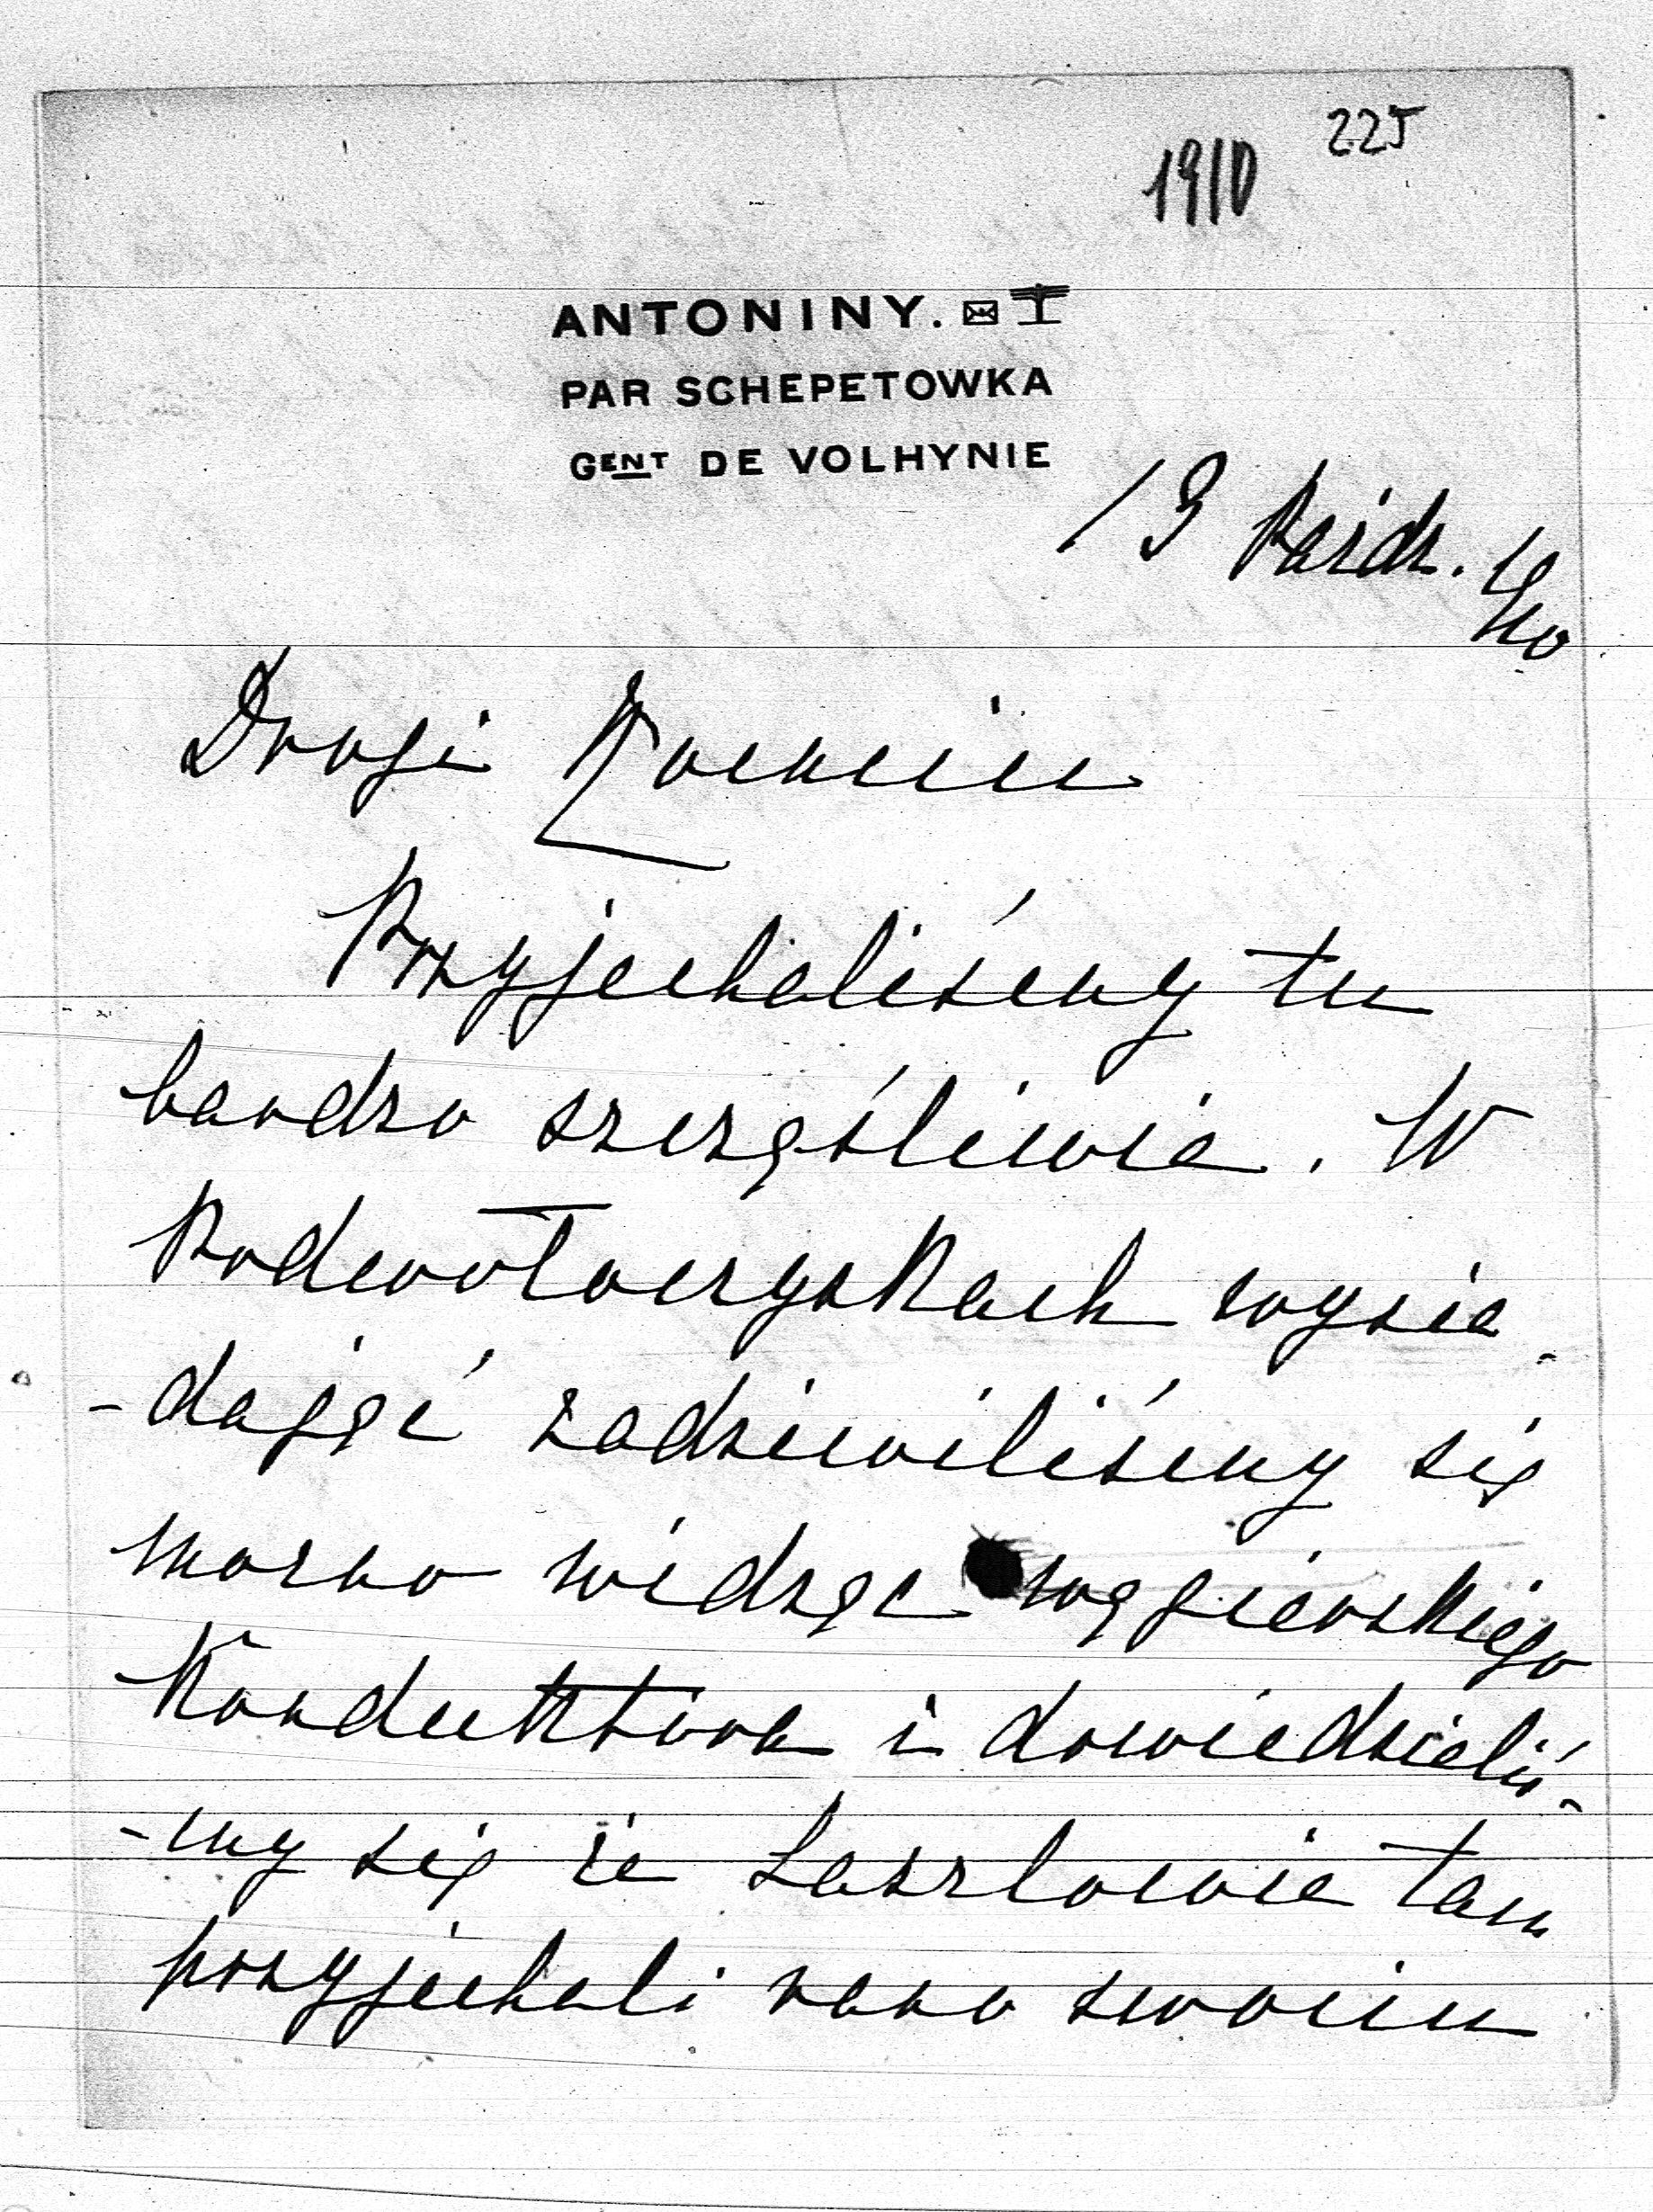 225
1910
ANTONINY.
PAR SCHEPETOWKA
GENT DE VOLHYNIE
13 Paźdz. 910
Drogi
Przyjechaliśmy tu
bardzo szczęśliwie. W
Podwołoczyskach wysia-
-dając zadziwiliśmy się
mocno widząc węgierskiego
Konduktora i dowiedzieliś-
-my się że Laszlowie tam
przyjechali rano swoim